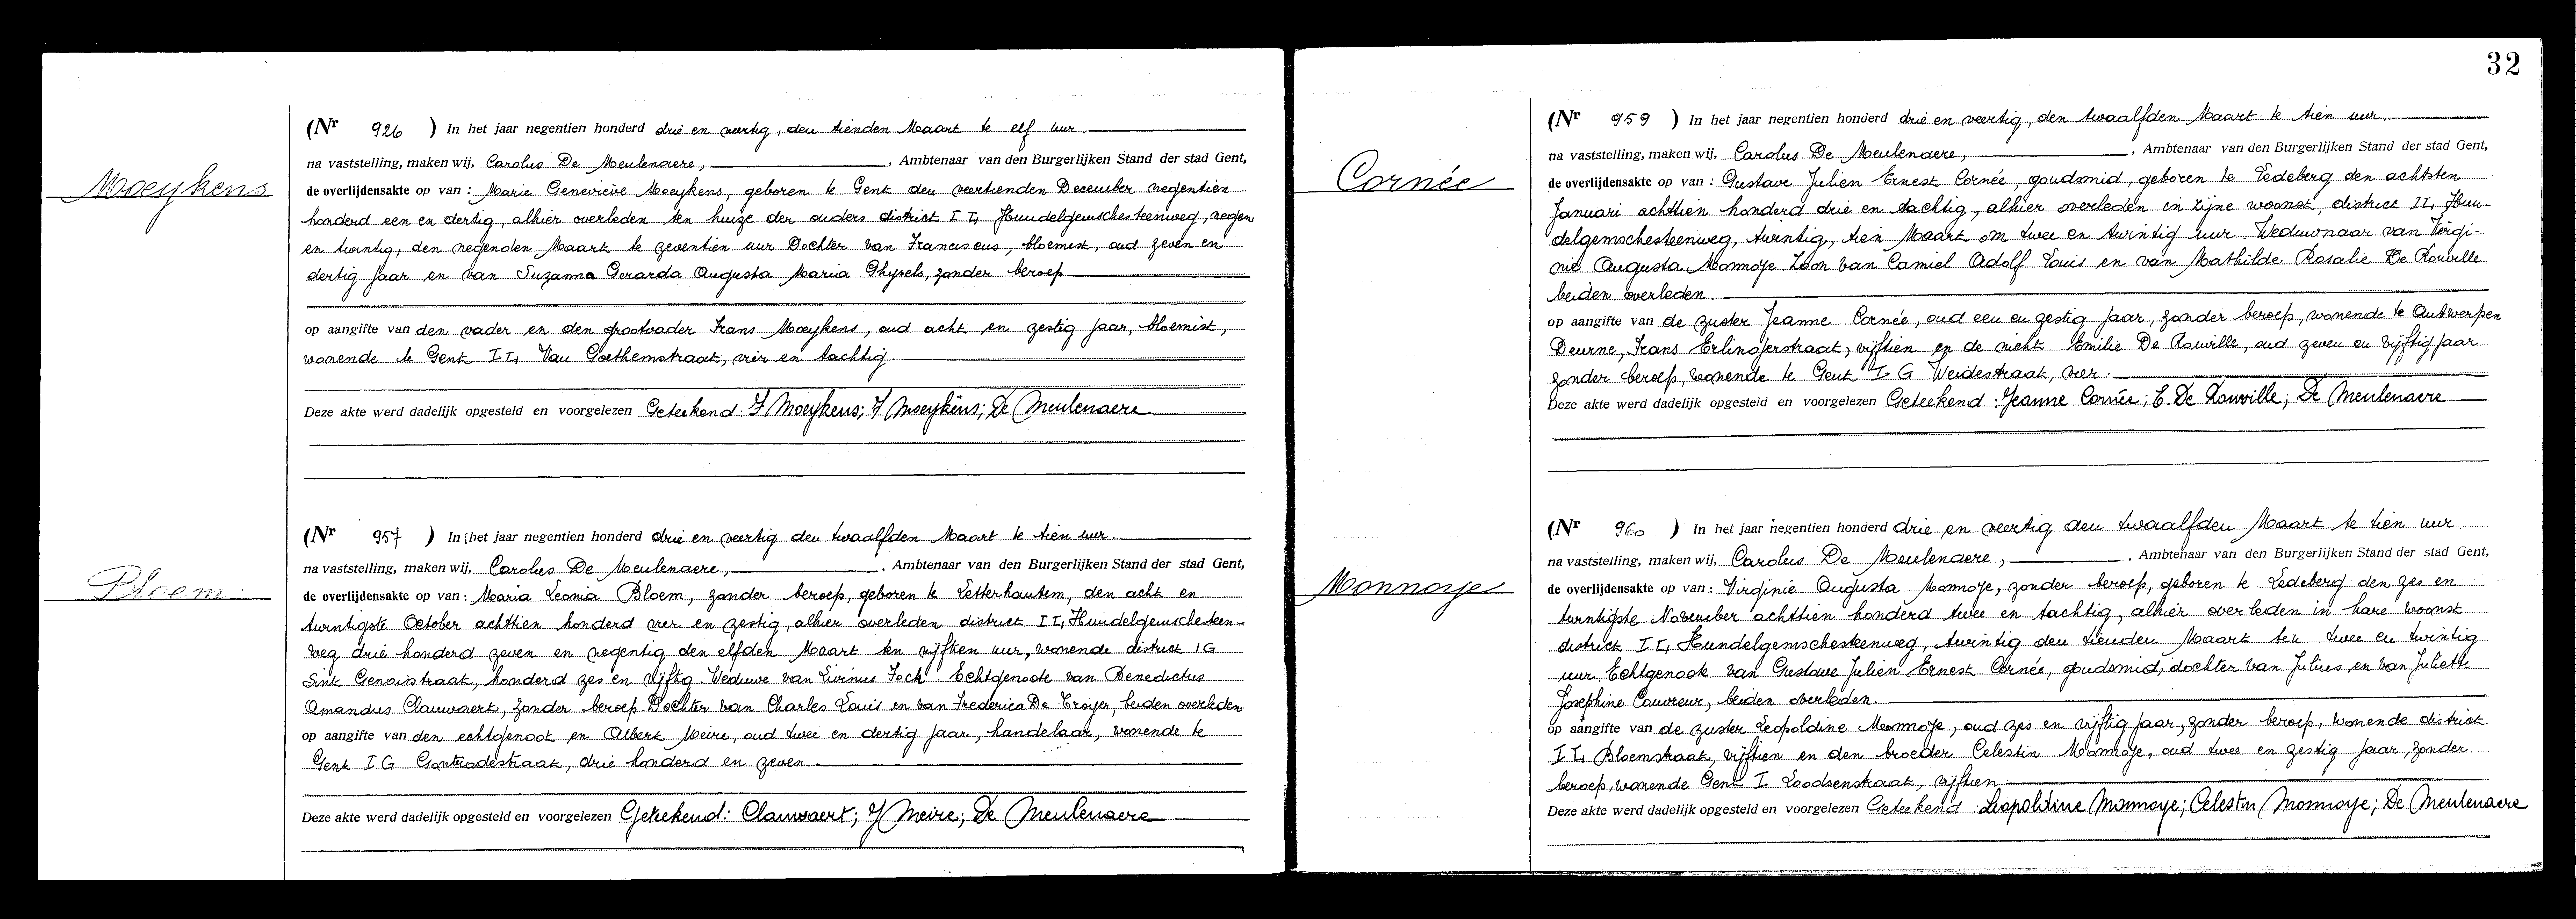 Moeykens
(Nr 926 ) In het jaar negentien honderd drie en veertig, den tienden Maart te elf uur.
na vaststelling, maken wij, Carolus De Meulenaere, , Ambtenaar van den Burgerlijken Stand der stad Gent,
de overlijdensakte op van : Marie Geneviève Moeykens, geboren te Gent den veertienden December negentien
honderd een en dertig, alhier overleden ten huize der ouders district II, Hundelgemschesteenweg, negen
en twintig, den negenden Maart te zeventien uur Dochter van Franciscus, bloemist, oud zeven en
dertig jaar en van Suzanna Gerarda Augusta Maria Ghysels, zonder beroep
op aangifte van den vader en den grootvader Frans Moeykens, oud acht en zestig jaar, bloemist,
wonende te Gent II, Van vier en tachtig
Deze akte werd dadelijk opgesteld en voorgelezen Geteekend: F Moeykens; F Moeykens; De Meulenaere
Bloem
(Nr 957 ) In het jaar negentien honderd drie en veertig den twaalfden Maart te tien uur.
na vaststelling, maken wij, Carolus De Meulenaere, , Ambtenaar van den Burgerlijken Stand der stad Gent,
de overlijdensakte op van : Maria Leonia Bloem, zonder beroep, geboren te Letterhautem, den acht en
twintigste October achttien honderd vier en zestig, alhier overleden district II, Hundelgemschesteen-
weg drie honderd zeven en negentig den elfden Maart ten vijftien uur, wonende district IG
Sint Genoisstraat, honderd zes en vijftig. Weduwe van Livinus Fock. Echtgenoote van Benedictus
Amandus Clauwaert, zonder beroep. Dochter van Charles Louis en van Frederica De Troyer, beiden overleden
op aangifte van den echtgenoot en Albert Meire, oud twee en dertig jaar, handelaar, wonende te
Gent IG Gontrodestraat, drie honderd en zeven
Deze akte werd dadelijk opgesteld en voorgelezen Geteekend: Clauwaert; Meire; De Meulenaere
32
Cornée
(Nr 959 ) In het jaar negentien honderd drie en veertig, den twaalfden Maart te tien uur.
na vaststelling, maken wij, Carolus De Meulenaere, , Ambtenaar van den Burgerlijken Stand der stad Gent,
de overlijdensakte op van : Gustave Julien Ernest Cornée, goudsmid, geboren te Ledeberg den achtsten
Januari achttien honderd drie en tachtig, alhier overleden in zijne woonst, district II, Hun-
delgemschesteenweg, twintig, tien Maart om twee en twintig uur. Weduwnaar van Virgi-
nie Augusta Monnoye Zoon van Camiel Adolf Louis en van Mathilde Rosalie De Rouville
beiden overleden.
op aangifte van de zuster Jeanne Cornée, oud een en zestig jaar, zonder beroep, wonende te Antwerpen
Deurne, Frans Erlingerstraat, vijftien en de nicht Emilie De Rouville, oud zeven en vijftig jaar
zonder beroep, wonende te Gent I G Weidestraat, vier.
Deze akte werd dadelijk opgesteld en voorgelezen Geteekend : Jeanne Cornée; E. De Rouville; De Meulenaere
Monnoye
(Nr 960 ) In het jaar negentien honderd drie en veertig den twaalfden Maart te tien uur.
na vaststelling, maken wij, Carolus De Meulenaere, , Ambtenaar van den Burgerlijken Stand der stad Gent,
de overlijdensakte op van : Virginie Augusta Monnoye, zonder beroep, geboren te Ledeberg den zes en
twintigste November achttien honderd twee en tachtig, alhier overleden in hare woonst
district II, Hundelgemschesteenweg, twintig den tienden Maart ten twee en twintig
uur Echtgenoote van Gustave Julien Ernest Cornée, goudsmid, dochter van Julius en van Juliette
Josephine Couvreur, beiden overleden.
op aangifte van de zuster Leopoldine Monnoye, oud zes en vijftig jaar, zonder beroep, wonende district
II, Bloemstraat, vijftien en den broeder Celestin Monnoye, oud twee en zestig jaar, zonder
beroep, wonende Gent I Loodsenstraat, vijftien.
Deze akte werd dadelijk opgesteld en voorgelezen Geteekend : Leopoldine Monnoye; Celestin Monnoye; De Meulenaere